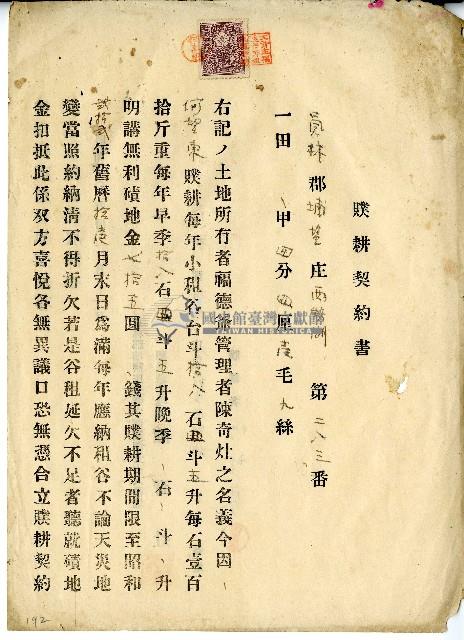 贌耕契約書
員林郡埔塩庄西勢湖 第二八三番
一田 、甲四分四厘壹毛九絲
右記ノ土地所有者福德爺管理者陳奇灶之名義今因
何望東贌耕每年小租谷台斗拾八石四斗五升每石壹百
拾斤重每年早季拾八石四斗五升晚季、石、斗、升
明講無利磧地金七拾五圓、錢其贌耕期間限至昭和
貳拾貳年舊曆拾壹月末日為滿每年應納租谷不論天災地
變當照約納清不得折欠若是谷租延欠不足者聽就磧地
金扣抵此係双方喜悅各無異議口恐無憑合立贌耕契約
國史館臺灣文獻館
TAIWAN HISTORICA
192